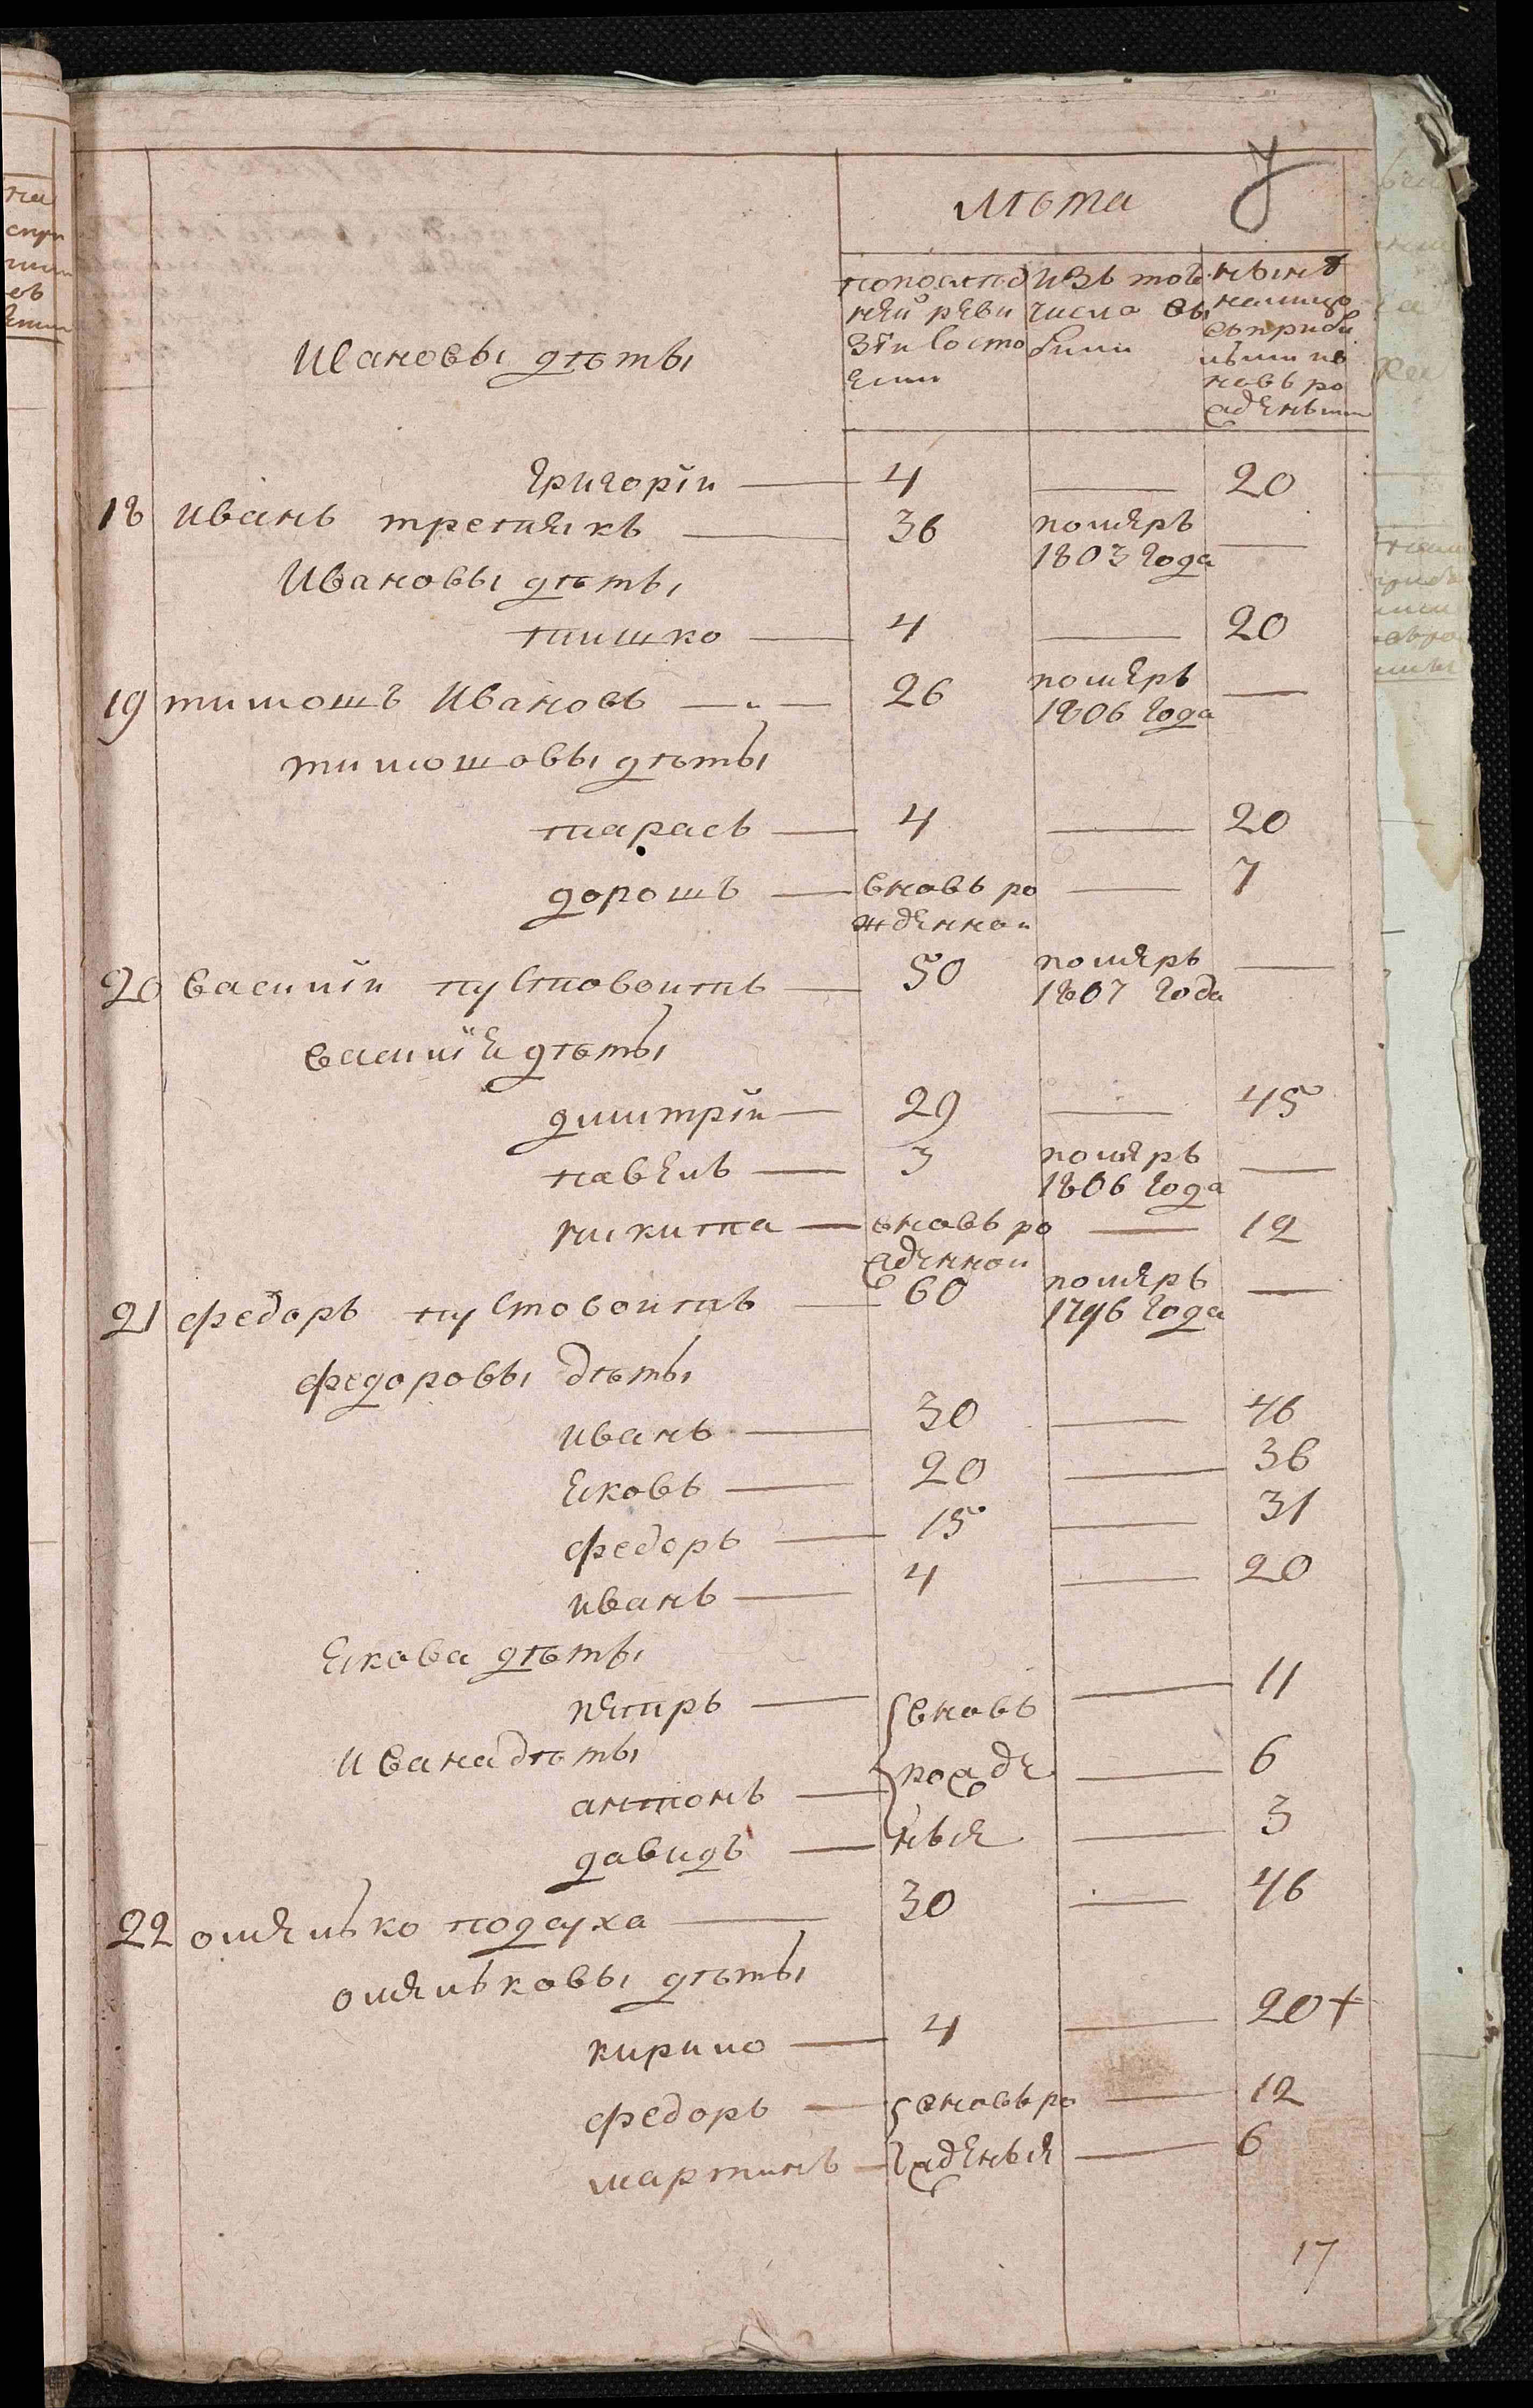 Лѣта
попослѣд изъ того нынѣ
ней реви числа вы налицо
зіи состо были съприбы
яли лыми но
новь ро
жденыи
Ивановы дѣты
Григорій — 4 — 20
18 Иванъ третякъ — 36 померъ —
1803 Года
Ивановы дѣты
тишко — 4 — 20
19 тимошъ Ивановъ — 26 помѣръ —
1806 Года
тимошовы дѣты
тарасъ — 4 — 20
дорошъ — вновь ро — 7
жденной
20 Василій пустовоитъ — 50 помѣръ —
1807 Года
василіѣ дѣты
дмитрій — 29 — 45
павелъ — 3 помѣръ —
1806 Года
никита — вновь ро — 12
жденной
21 федоръ пустовоитъ — 60 помѣръ —
1796 Года
федоровы дѣты
иванъ — 30 — 46
яковъ — 20 — 36
федоръ — 15 — 31
иванъ — 4 — 20
якова дѣты
петръ — вновь — 11
ивана дѣты
антонъ — рожде — 6
давидъ — ныя — 3
22 омелько подауха — 30 — 46
омельковы дѣты
кирило — 4 — 20+
федоръ — вновь ро — 12
мартинъ — жденыя — 6
17